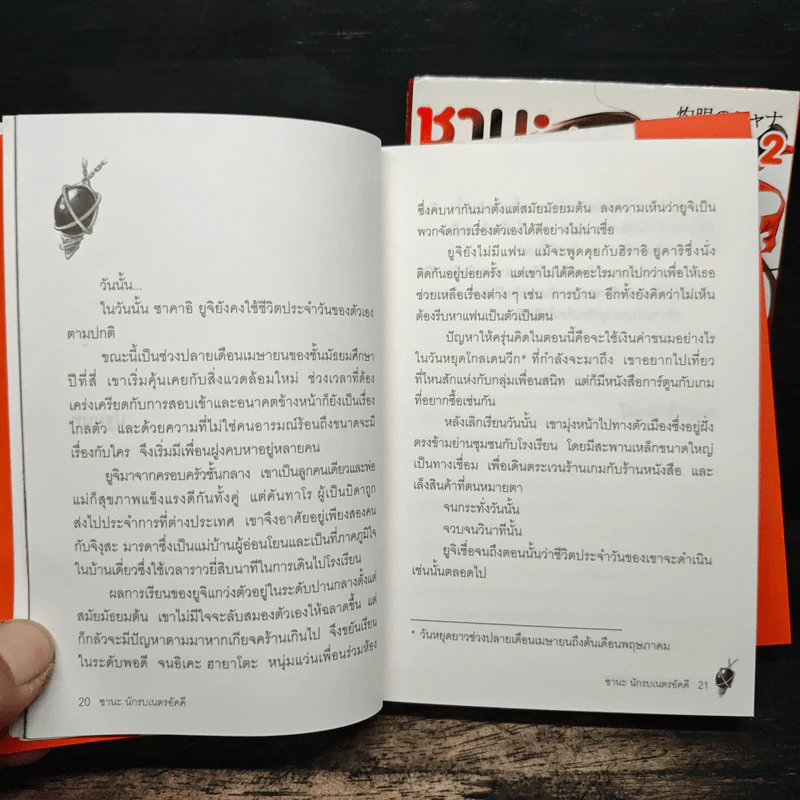 วันนั้น...
ในวันนั้น ซาคาอิ ยูจิยังคงใช้ชีวิตประจำวันของตัวเอง
ตามปกติ
ขณะนี้เป็นช่วงปลายเดือนเมษายนของชั้นมัธยมศึกษา
ปีที่สี่ เขาเริ่มคุ้นเคยกับสิ่งแวดล้อมใหม่ ช่วงเวลาที่ต้อง
เคร่งเครียดกับการสอบเข้าและอนาคตข้างหน้าก็ยังเป็นเรื่อง
ไกลตัว และด้วยความที่ไม่ใช่คนอารมณ์ร้อนถึงขนาดจะมี
เรื่องกับใคร จึงเริ่มมีเพื่อนฝูงคบหาอยู่หลายคน
ยูจิมาจากครอบครัวชั้นกลาง เขาเป็นลูกคนเดียวและพ่อ
แม่ก็สุขภาพแข็งแรงดีกันทั้งคู่ แต่คันทาโร ผู้เป็นบิดาถูก
ส่งไปประจำการที่ต่างประเทศ เขาจึงอาศัยอยู่เพียงสองคน
กับจิงุสะ มารดาซึ่งเป็นแม่บ้านผู้อ่อนโยนและเป็นที่ภาคภูมิใจ
ในบ้านเดี่ยวซึ่งใช้เวลาราวยี่สิบนาทีในการเดินไปโรงเรียน
ผลการเรียนของยูจิแกว่งตัวอยู่ในระดับปานกลางตั้งแต่
สมัยมัธยมต้น เขาไม่มีใจจะลับสมองตัวเองให้ฉลาดขึ้น แต่
ก็กลัวจะมีปัญหาตามมาหากเกียจคร้านเกินไป จึงขยันเรียน
ในระดับพอดี จนอิเคะ ฮายาโตะ หนุ่มแว่นเพื่อนร่วมห้อง
20 ชานะ นักรบเนตรอัคคี
ชานะ
灼眼のシャナ
2
ซึ่งคบหากันมาตั้งแต่สมัยมัธยมต้น ลงความเห็นว่ายูจิเป็น
พวกจัดการเรื่องตัวเองได้ดีอย่างไม่น่าเชื่อ
ยูจิยังไม่มีแฟน แม้จะพูดคุยกับฮิราอิ ยูคาริซึ่งนั่ง
ติดกันอยู่บ่อยครั้ง แต่เขาไม่ได้คิดอะไรมากไปกว่าเพื่อให้เธอ
ช่วยเหลือเรื่องต่าง ๆ เช่น การบ้าน อีกทั้งยังคิดว่าไม่เห็น
ต้องรีบหาแฟนเป็นตัวเป็นตน
ปัญหาให้ครุ่นคิดในตอนนี้คือจะใช้เงินค่าขนมอย่างไร
ในวันหยุดโกลเดนวีก* ที่กำลังจะมาถึง เขาอยากไปเที่ยว
ที่ไหนสักแห่งกับกลุ่มเพื่อนสนิท แต่ก็มีหนังสือการ์ตูนกับเกม
ที่อยากซื้อเช่นกัน
หลังเลิกเรียนวันนั้น เขามุ่งหน้าไปทางตัวเมืองซึ่งอยู่ฝั่ง
ตรงข้ามย่านชุมชนกับโรงเรียน โดยมีสะพานเหล็กขนาดใหญ่
เป็นทางเชื่อม เพื่อเดินตระเวนร้านเกมกับร้านหนังสือ และ
เล็งสินค้าที่ตนหมายตา
จนกระทั่งวันนั้น
จวบจนวินาทีนั้น
ยูจิเชื่อจนถึงตอนนั้นว่าชีวิตประจำวันของเขาจะดำเนิน
เช่นนั้นตลอดไป
* วันหยุดยาวช่วงปลายเดือนเมษายนถึงต้นเดือนพฤษภาคม
ชานะ นักรบเนตรอัคคี 21